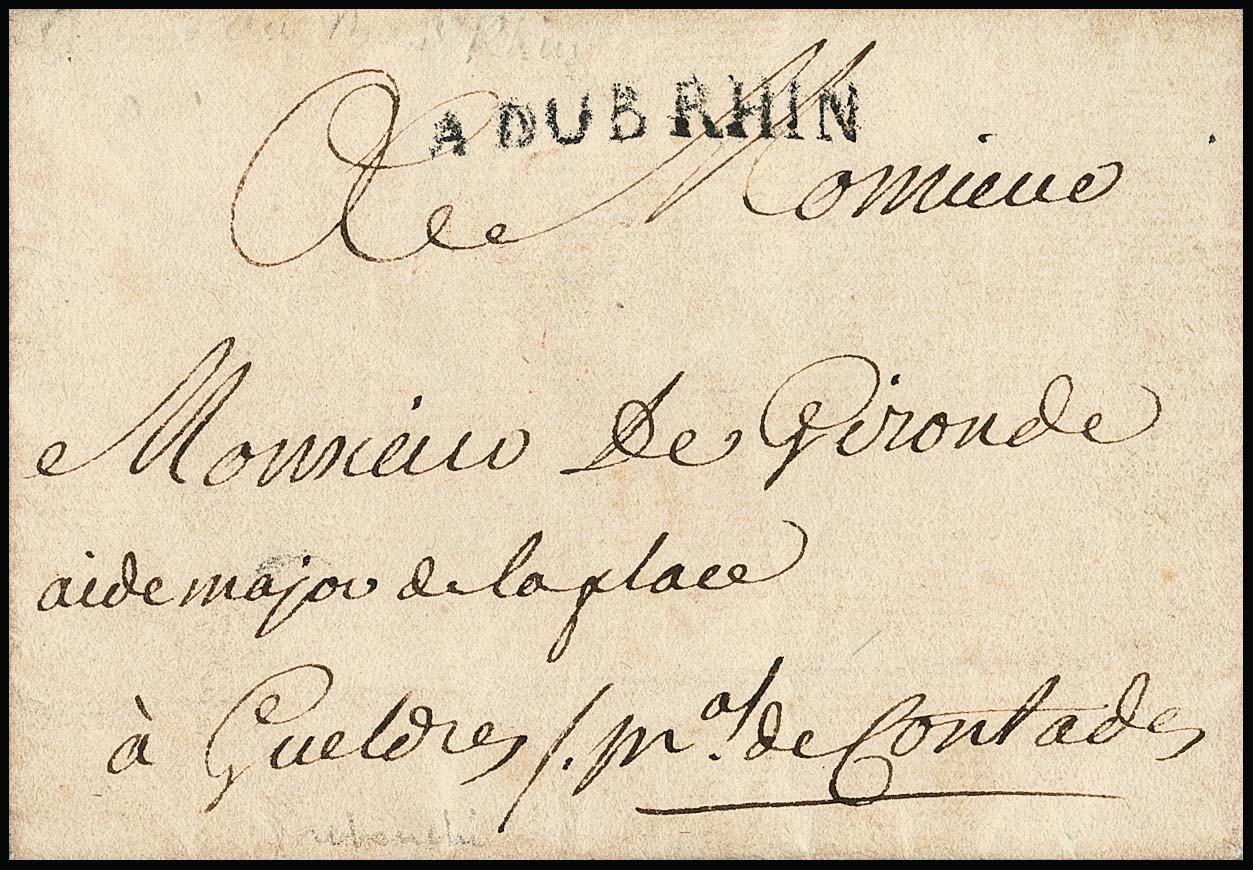 A DU B RHIN
A Monsieur
Monsieur De Gironde
aide major de la place
à Gueldres /. mal. de Contades